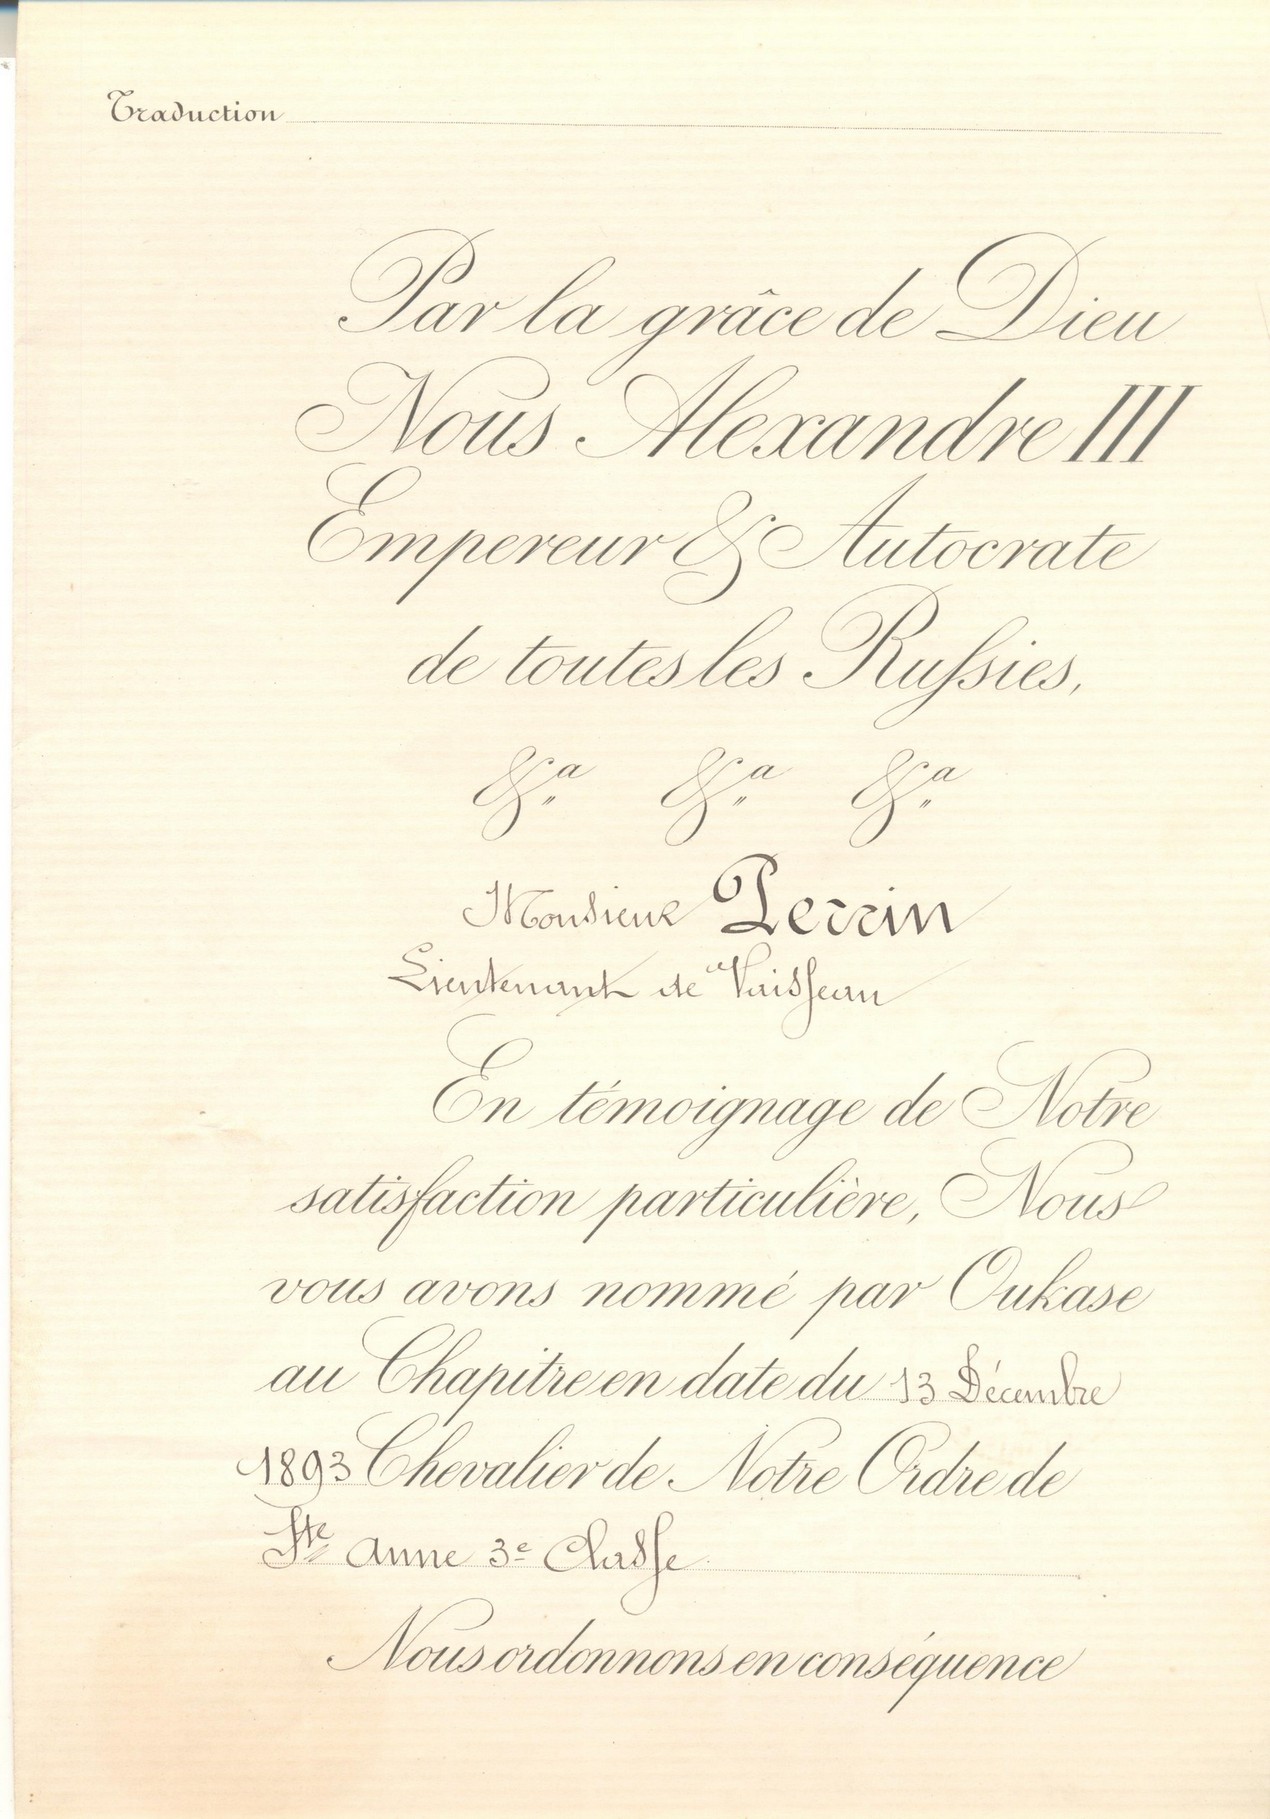 Traduction
Par la grâce de Dieu
Nous Alexandre III
Empereur & Autocrate
de toutes les Russies,
&a &a &a
Monsieur Perrin
Lieutenant de Vaisseau
En témoignage de Notre
satisfaction particulière, Nous
vous avons nommé par Oukase
au Chapitre en date du 13 Décembre
1893 Chevalier de Notre Ordre de
Ste Anne 3e Classe
Nous ordonnons en conséquence